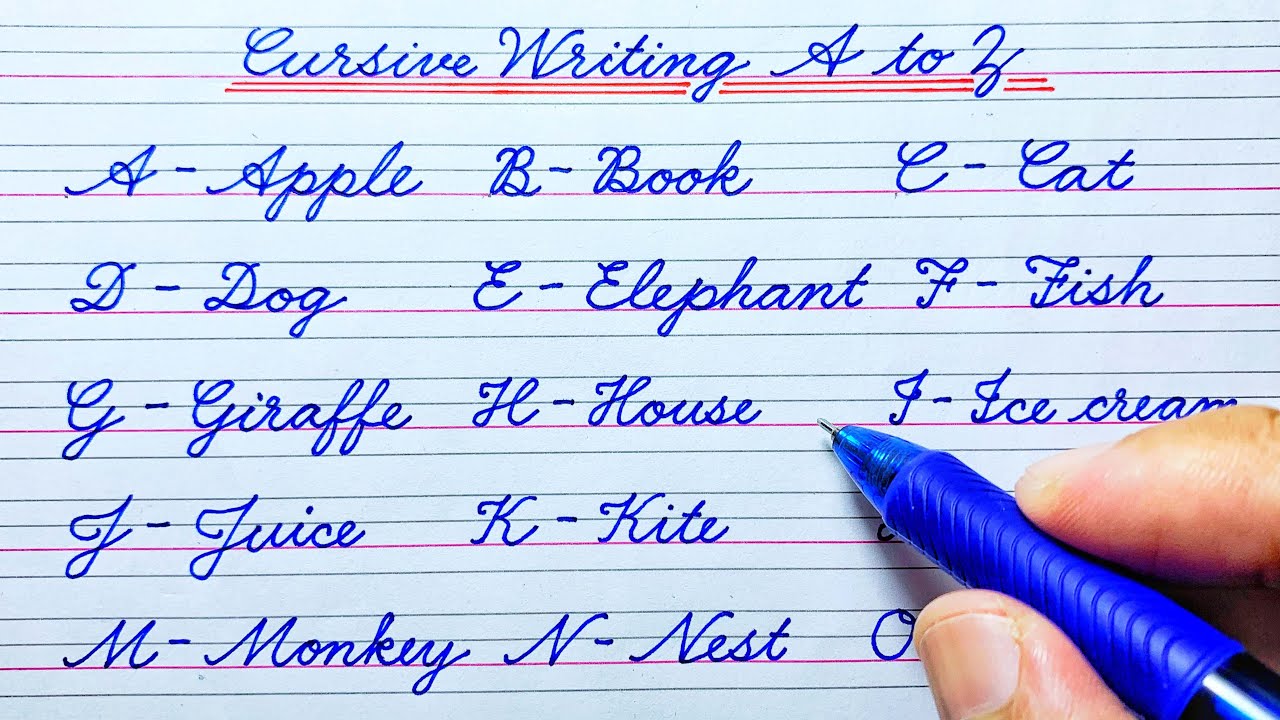 Cursive Writing A to Z
A - Apple B - Book C - Cat
D - Dog E - Elephant F - Fish
G - Giraffe H - House I - Ice cream
J - Juice K - Kite
M - Monkey N - Nest O